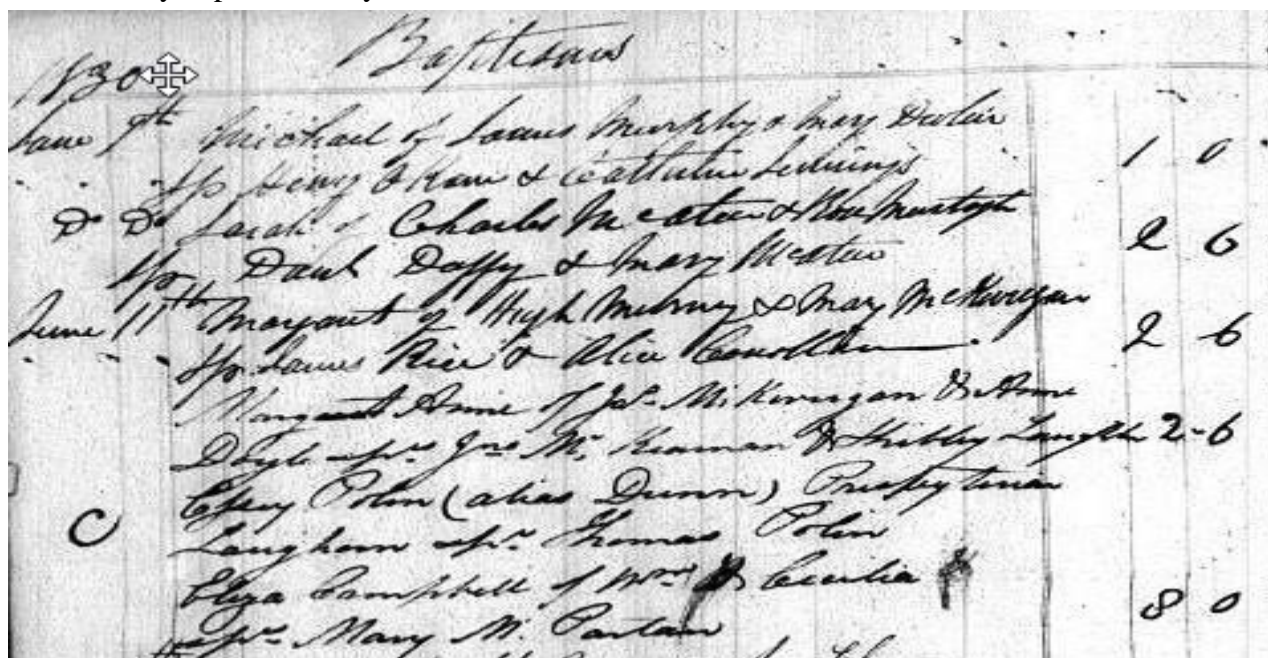 1830 Baptisms
June 9th Michael of James Murphy & Mary Devlin 1 0
Sp Henry O Kane & Catherine
Do Do Sarah of Charles McAteer & Rose Murtagh 2 6
Sp Danl Daffy & Mary McAteer
June 11th Margaret of Hugh & Mary McKerrigan 2 6
Sp James Rice & Alice
Margaret Anne of Jas. McKerrigan & Anne
Doyle sprs Jno Mc. Kiernan & 2-6
Polin (alias Dunn) Presbyterian
C Langhorn spr. Thomas Polin
Eliza Campbell of Wm & Cecilia 8 0
sprs Mary Mc. Partan